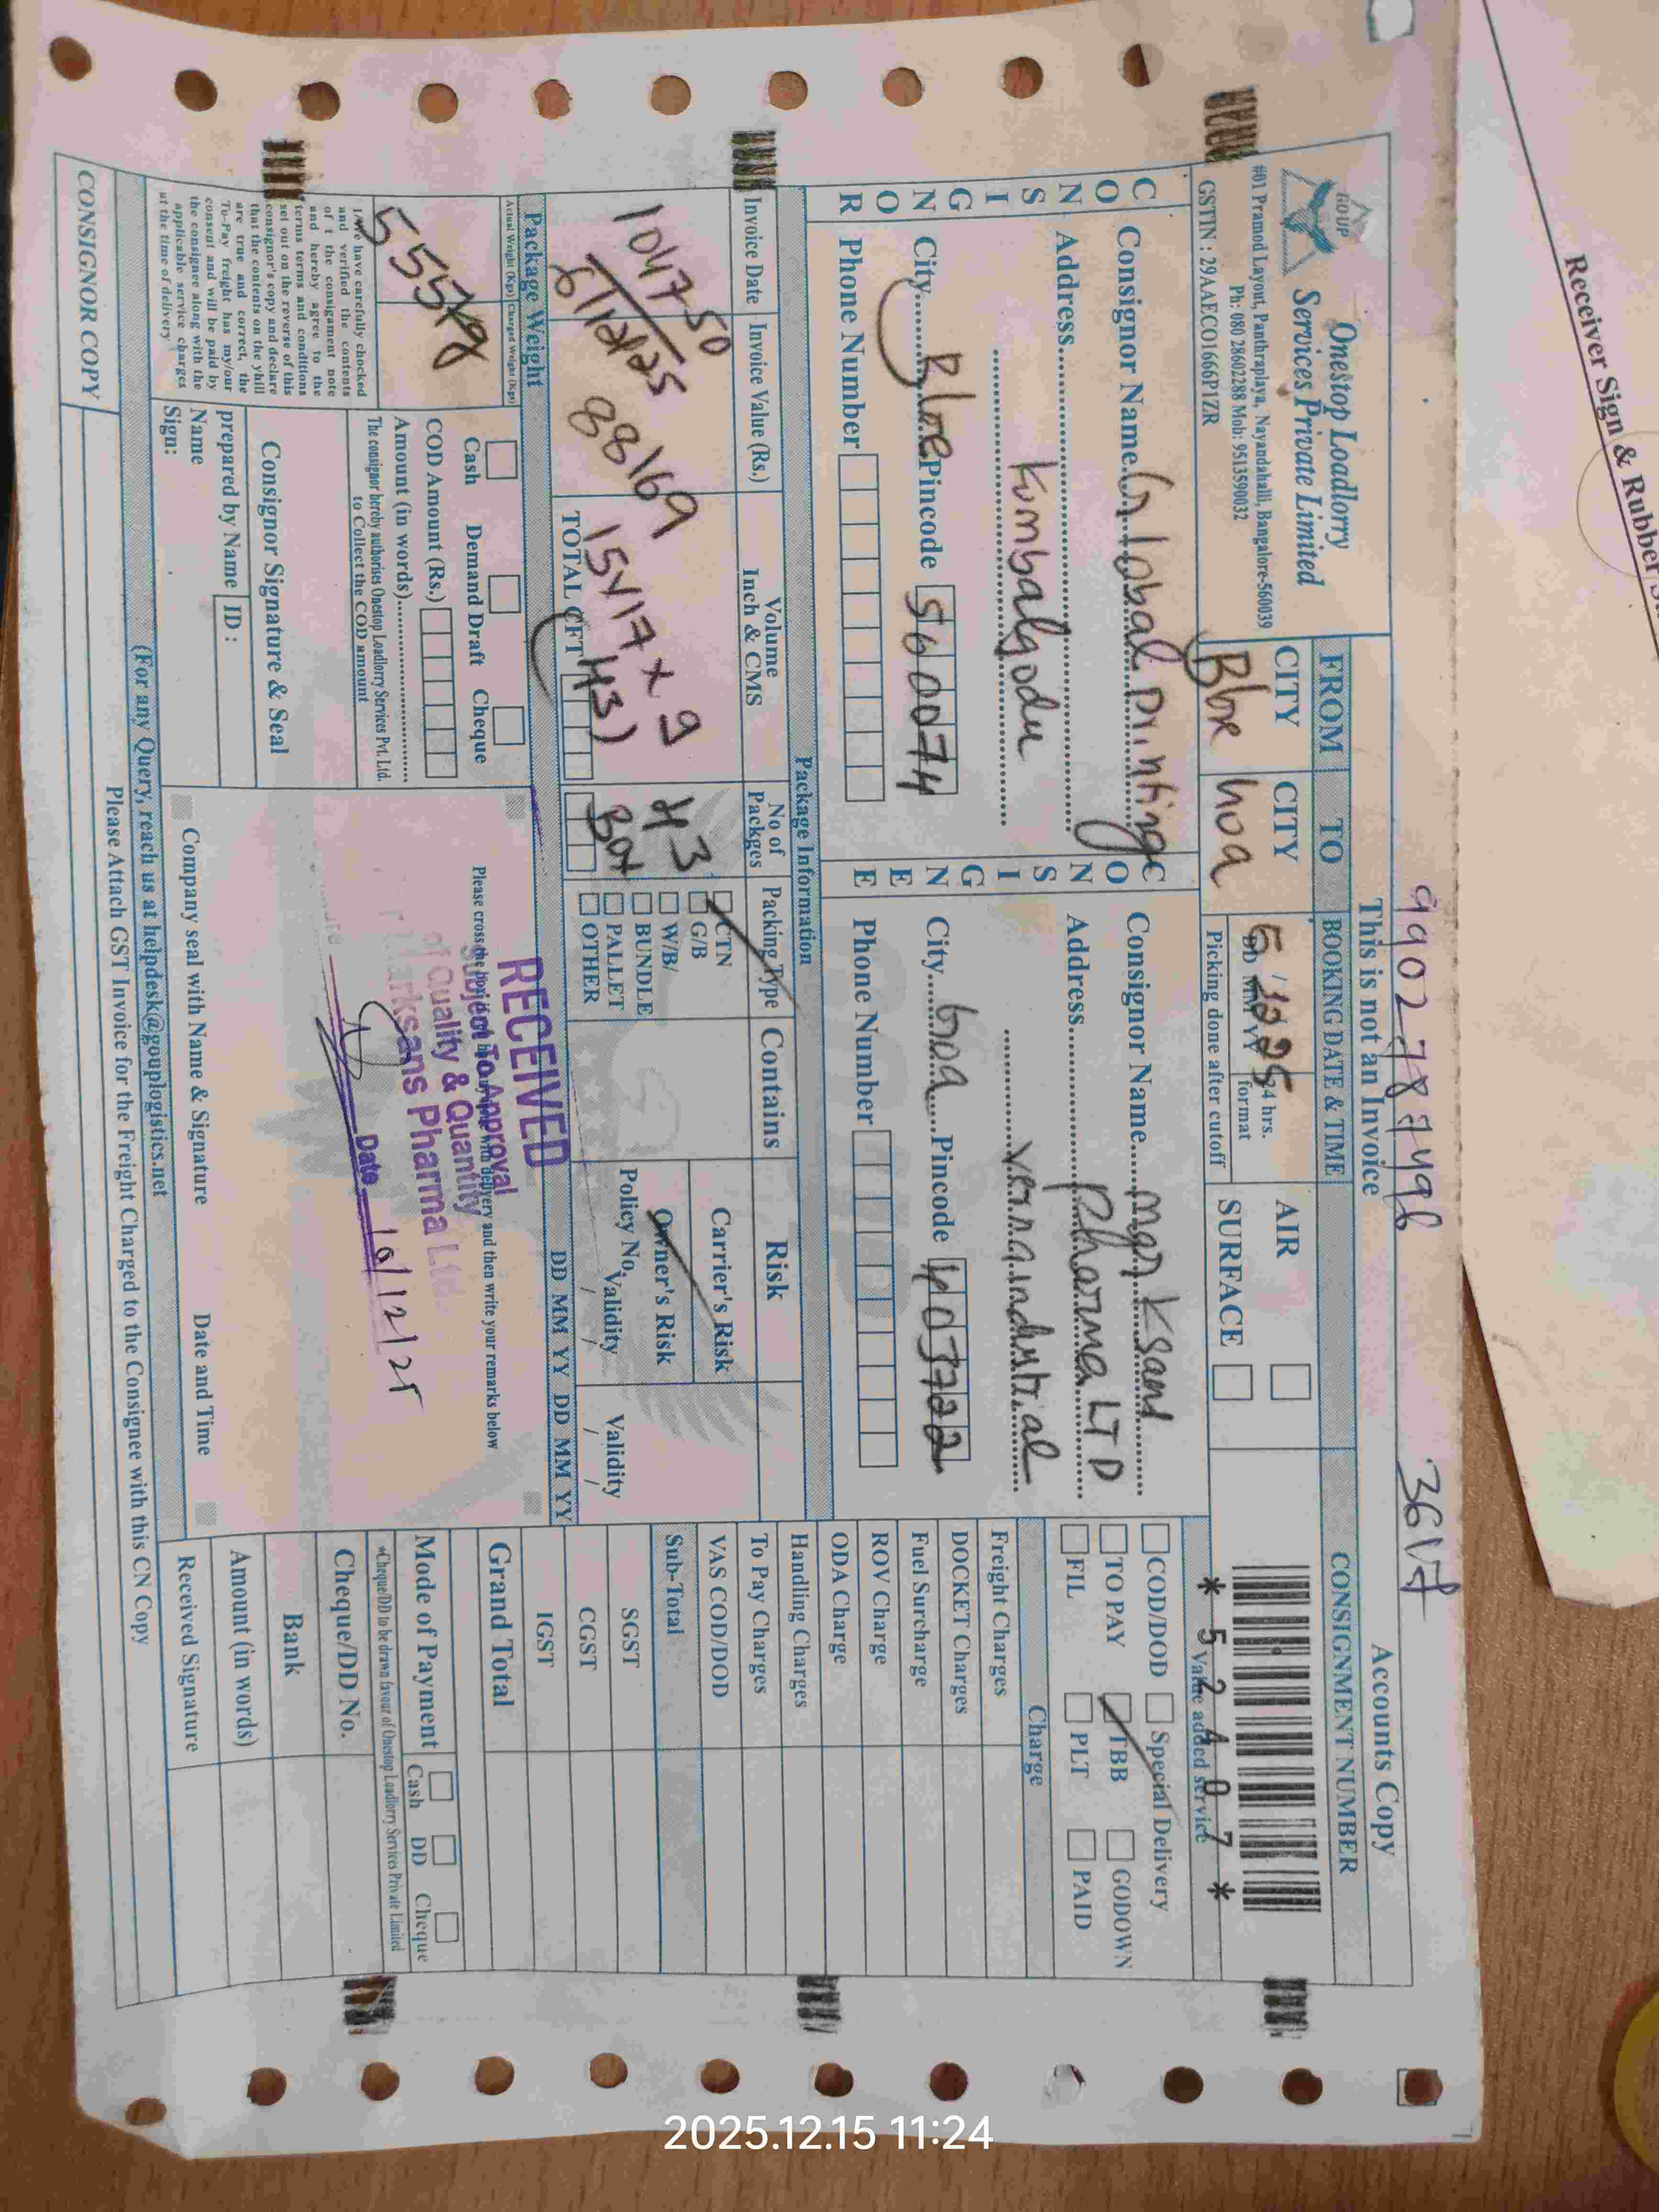 Receiver Sign & Rubber
9902787496
3617
This is not an Invoice
Accounts Copy
GO UP
Onestop Loadlorry
Services Private Limited
#01 Pramod Layout, Panthrapalaya, Nayandahalli, Bangalore-560039
Ph: 080 28602288 Mob: 9513590032
GSTIN : 29AAECO1666P1ZR
FROM TO BOOKING DATE & TIME CONSIGNMENT NUMBER
CITY CITY
Blre Goa
DD MM YY 24 hrs. format
Picking done after cutoff
AIR
SURFACE
* 5 2 4 0 7 *
Value added service
CONSIGNOR
Consignor Name Global Printing
Address
Kumbalgodu
City Blre Pincode 560074
Phone Number
CONSIGNEE
Consignor Name Marksans
Address Pharma LTD
Verna industrial
City Goa Pincode 403722
Phone Number
COD/DOD Special Delivery
TO PAY TBB GODOWN
FIL PLT PAID
Charge
Freight Charges
DOCKET Charges
Fuel Surcharge
ROV Charge
ODA Charge
Handling Charges
To Pay Charges
VAS COD/DOD
Sub-Total
SGST
CGST
IGST
Grand Total
Package Information
Invoice Date Invoice Value (Rs.) Volume Inch & CMS No of Packges Packing Type Contains Risk
1047-50
5/12/25
88169
15x17x9
43)
TOTAL CFT
43
Box
CTN
G/B
W/B/
BUNDLE
PALLET
OTHER
Carrier's Risk
Owner's Risk
Policy No. Validity
Validity
DD MM YY DD MM YY
Package Weight
Actual Weight (Kgs) Charged Weight (Kgs)
555kg
Cash Demand Draft Cheque
COD Amount (Rs.)
Amount (in words)
The consignor hereby authorises Onestop Loadlorry Services Pvt. Ltd.
to Collect the COD amount
I/We have carefully chocked
and verified the contents
of t the consigament note
and hereby agree to the
terms terms and conditions
set out on the reverse of this
consignor's copy and declare
that the contents on the yhill
are true and correct, the
To-Pay freight has my/our
consent and will be paid by
the consignee along with the
applicable service charges
at the time of delivery
Consignor Signature & Seal
prepared by Name ID :
Name
Sign:
Please cross the box and then write your remarks below
RECEIVED
Subject To Approval
of Quality & Quantity
Marksans Pharma Ltd.
Date 10/12/25
Company seal with Name & Signature Date and Time
Mode of Payment Cash DD Cheque
*Cheque/DD to be drawn favour of Onestop Loadlorry Services Private Limited
Cheque/DD No.
Bank
Amount (in words)
Received Signature
(For any Query, reach us at helpdesk@gouplogistics.net
Please Attach GST Invoice for the Freight Charged to the Consignee with this CN Copy
CONSIGNOR COPY
2025.12.15 11:24